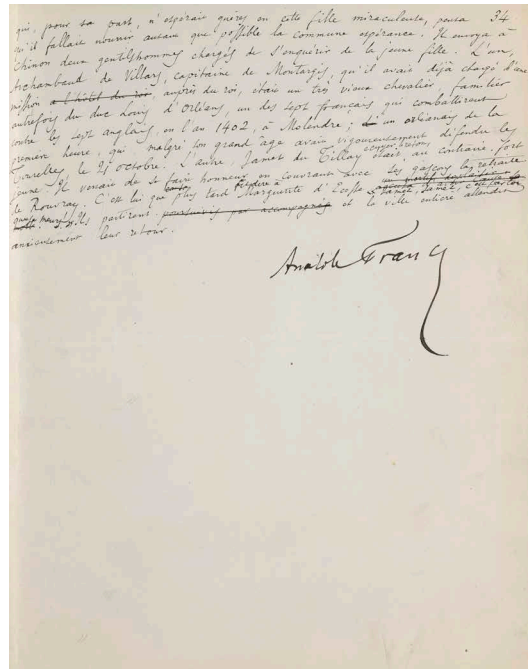 qui, pour sa part, n'espérait guères en cette fille miraculeuse, pensa 34
qu'il fallait nourrir autant que possible la commune espérance. Il envoya à
Chinon deux gentilshommes chargés de s'enquérir de la jeune fille. L'un,
Archambaud de Villars, capitaine de Montargis, qu'il avait déjà chargé d'une
mission à l'hôtel du roi, auprès du roi, était un très vieux chevalier familier
autrefois du duc Louis d'Orléans, un des sept français qui combattirent
contre les sept anglais, en l'an 1402, à Molendre; un orléanais de la
première heure, qui malgré son grand âge avait vigoureusement défendu les
Tourelles, le 21 octobre. L'autre, Jamet du Tillay écuyer breton, était, au contraire, fort
jeune. Il venait de se faire honneur en couvrant avec ses gascons la retraite
de Rouvray. C'est lui que plus tard Marguerite d'Ecosse
Ils partirent et la ville entière attendit
anxieusement leur retour.
Anatole France